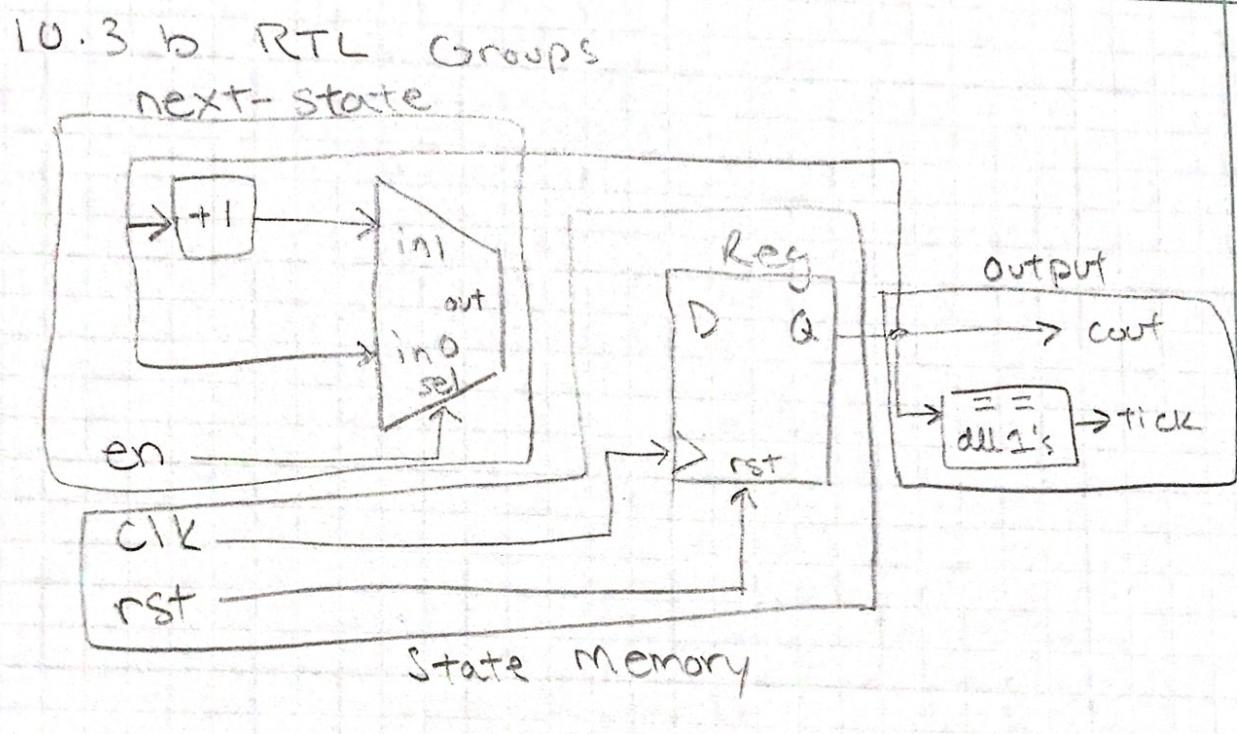 10.3 b RTL Groups
next-state
+1
in1
out
in0
sel
en
Reg
D Q
rst
output
cout
==
all 1's
tick
clk
rst
State Memory